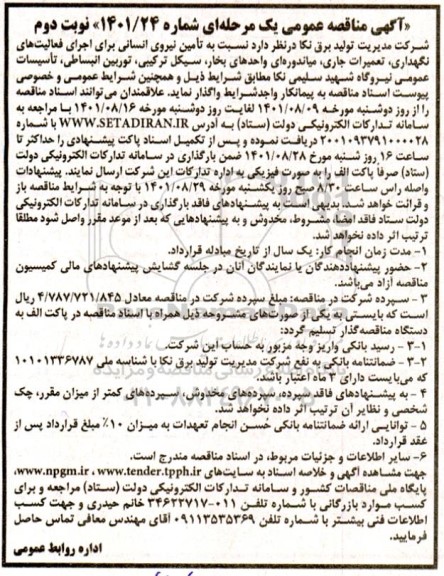 «آگهی مناقصه عمومی یک مرحله‌ای شماره ۱۴۰۱/۲۴» نوبت دوم
شرکت مدیریت تولید برق نکا درنظر دارد نسبت به تأمین نیروی انسانی برای اجرای فعالیت‌های
نگهداری، تعمیرات جاری، میاندوره‌ای واحدهای بخار، سیکل ترکیبی، توربین انبساطی، تأسیسات
عمومی نیروگاه شهید سلیمی نکا مطابق شرایط ذیل و همچنین شرایط عمومی و خصوصی
پیوست اسناد مناقصه به پیمانکار واجدشرایط واگذار نماید. علاقمندان می‌توانند اسناد مناقصه
را از روز دوشنبه مورخه ۱۴۰۱/۰۸/۰۹ لغایت روز دوشنبه مورخه ۱۴۰۱/۰۸/۱۶ با مراجعه به
سامانه تدارکات الکترونیکی دولت (ستاد) به آدرس WWW.SETADIRAN.IR با شماره
۲۰۰۱۰۹۳۷۹۱۰۰۰۰۲۸ دریافت نموده و پس از تکمیل اسناد پاکت پیشنهادی را حداکثر تا
ساعت ۱۶ روز شنبه مورخ ۱۴۰۱/۰۸/۲۸ ضمن بارگذاری در سامانه تدارکات الکترونیکی دولت
(ستاد) صرفا پاکت الف را به صورت فیزیکی به اداره تدارکات این شرکت ارسال نمایند. پیشنهادات
واصله راس ساعت ۸/۳۰ صبح روز یکشنبه مورخه ۱۴۰۱/۰۸/۲۹ با توجه به شرایط مناقصه باز
و قرائت خواهد شد. بدیهی است به پیشنهادهای فاقد بارگذاری در سامانه تدارکات الکترونیکی
دولت ستاد فاقد امضا، مشروط، مخدوش و به پیشنهادهایی که بعد از موعد مقرر واصل شود مطلقا
ترتیب اثر داده نخواهد شد.
۱- مدت زمان انجام کار: یک سال از تاریخ مبادله قرارداد.
۲- حضور پیشنهاددهندگان یا نمایندگان آنان در جلسه گشایش پیشنهادهای مالی کمیسیون
مناقصه آزاد می‌باشد.
۳ - سپرده شرکت در مناقصه: مبلغ سپرده شرکت در مناقصه معادل ۴/۷۸۷/۷۲۱/۸۴۵ ریال
است که بایستی به یکی از صورت‌های مشروحه ذیل همراه با اسناد مناقصه در پاکت الف به
دستگاه مناقصه‌گذار تسلیم گردد:
۳-۱ - رسید بانکی واریز وجه مزبور به حساب این شرکت.
۳-۲ - ضمانتنامه بانکی به نفع شرکت مدیریت تولید برق نکا با شناسه ملی ۱۰۱۰۱۳۳۶۷۸۷
که می‌بایست دارای ۳ ماه اعتبار باشد.
۴ - به پیشنهادهای فاقد سپرده، سپرده‌های مخدوش، سپرده‌های کمتر از میزان مقرر، چک
شخصی و نظایر آن ترتیب اثر داده نخواهد شد.
۵ - توانایی ارائه ضمانتنامه بانکی حُسن انجام تعهدات به میزان ۱۰٪ مبلغ قرارداد پس از
عقد قرارداد.
۶- سایر اطلاعات و جزئیات مربوط، در اسناد مناقصه مندرج است.
جهت مشاهده آگهی و خلاصه اسناد به سایت‌های www.tender.tpph.ir ، www.npgm.ir،
پایگاه ملی مناقصات کشور و سامانه تدارکات الکترونیکی دولت (ستاد) مراجعه و برای
کسب موارد بازرگانی با شماره تلفـن ۰۱۱-۳۴۶۲۲۷۱۷ خانم حیدری و جهت کسب
اطلاعات فنی بیشتر با شماره تلفن ۰۹۱۱۳۵۳۵۳۶۹ آقای مهندس معافی تماس حاصل
فرمایید.
اداره روابط عمومی